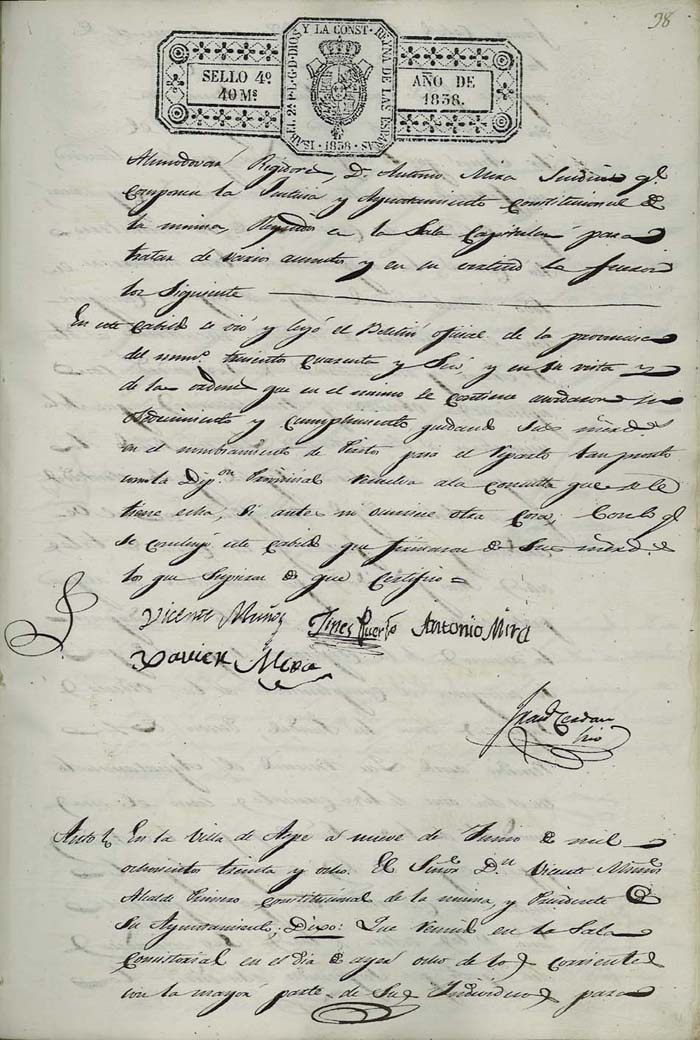 98
SELLO 4º
40 Ms
ISABEL 2ª P. L. G. D. DIOS Y LA CONST. REYNA DE LAS ESPAÑAS
1838
AÑO DE
1838.
Almodovar Regidores, D. Antonio Mira Sindico gl.
componen la Justicia y Ayuntamiento Constitucional de
la misma, Reunidos en la Sala Capitular para
tratar de varios asuntos, y en su
los siguiente
En este Cabildo se vió y leyó el Boletin oficial de la provincia
del numº. trecientos Cuarenta y Seis, y en su vista y
de las ordenes que en el mismo se contiene acordaron su
obedecimiento y cumplimiento
en el nombramiento de Peritos para el Reparto tan pronto
como la Dipon. Provincial resuelva ala consulta que se le
tiene echa, si antes no ocurriese otra cosa; Con lo ql.
se concluyó este Cabildo que firmaron de Sus mercedes
los que Supieron de que Certifico =
Vicente Muñoz Gines Puerto Antonio Mira
Xavier Mira
Cerdan
Srio
Auto En la Villa de Aspe a nueve de Junio de mil
ochocientos treinta y ocho. El Señor Dn. Vicente Muñoz
Alcalde Primero constitucional de la misma, y Presidente de
Su Ayuntamiento, Dixo: Que reunido en la Sala
Consistorial en el dia de ayer ocho de los Corrientes
con la mayor parte de Sus Individuos para